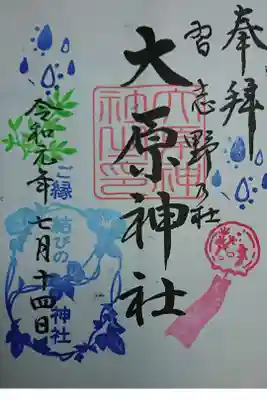 奉拝
習志野乃社
大原神社
令和元年七月十四日
ご縁
結びの
神社